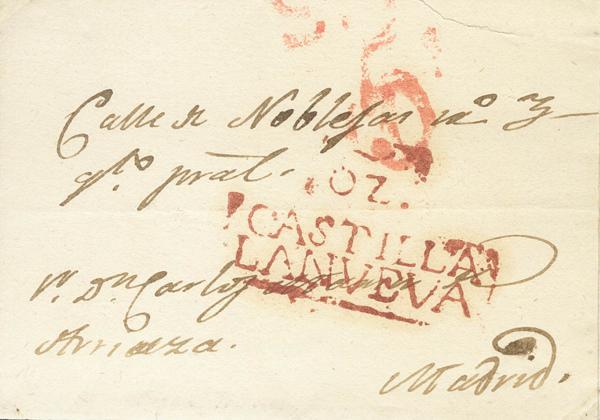 Calle de Noblejas nº 3
qto pral.
OZ.
CASTILLA
LANUEVA
Sr. Dn Carlos de
Arriaza.
Madrid.